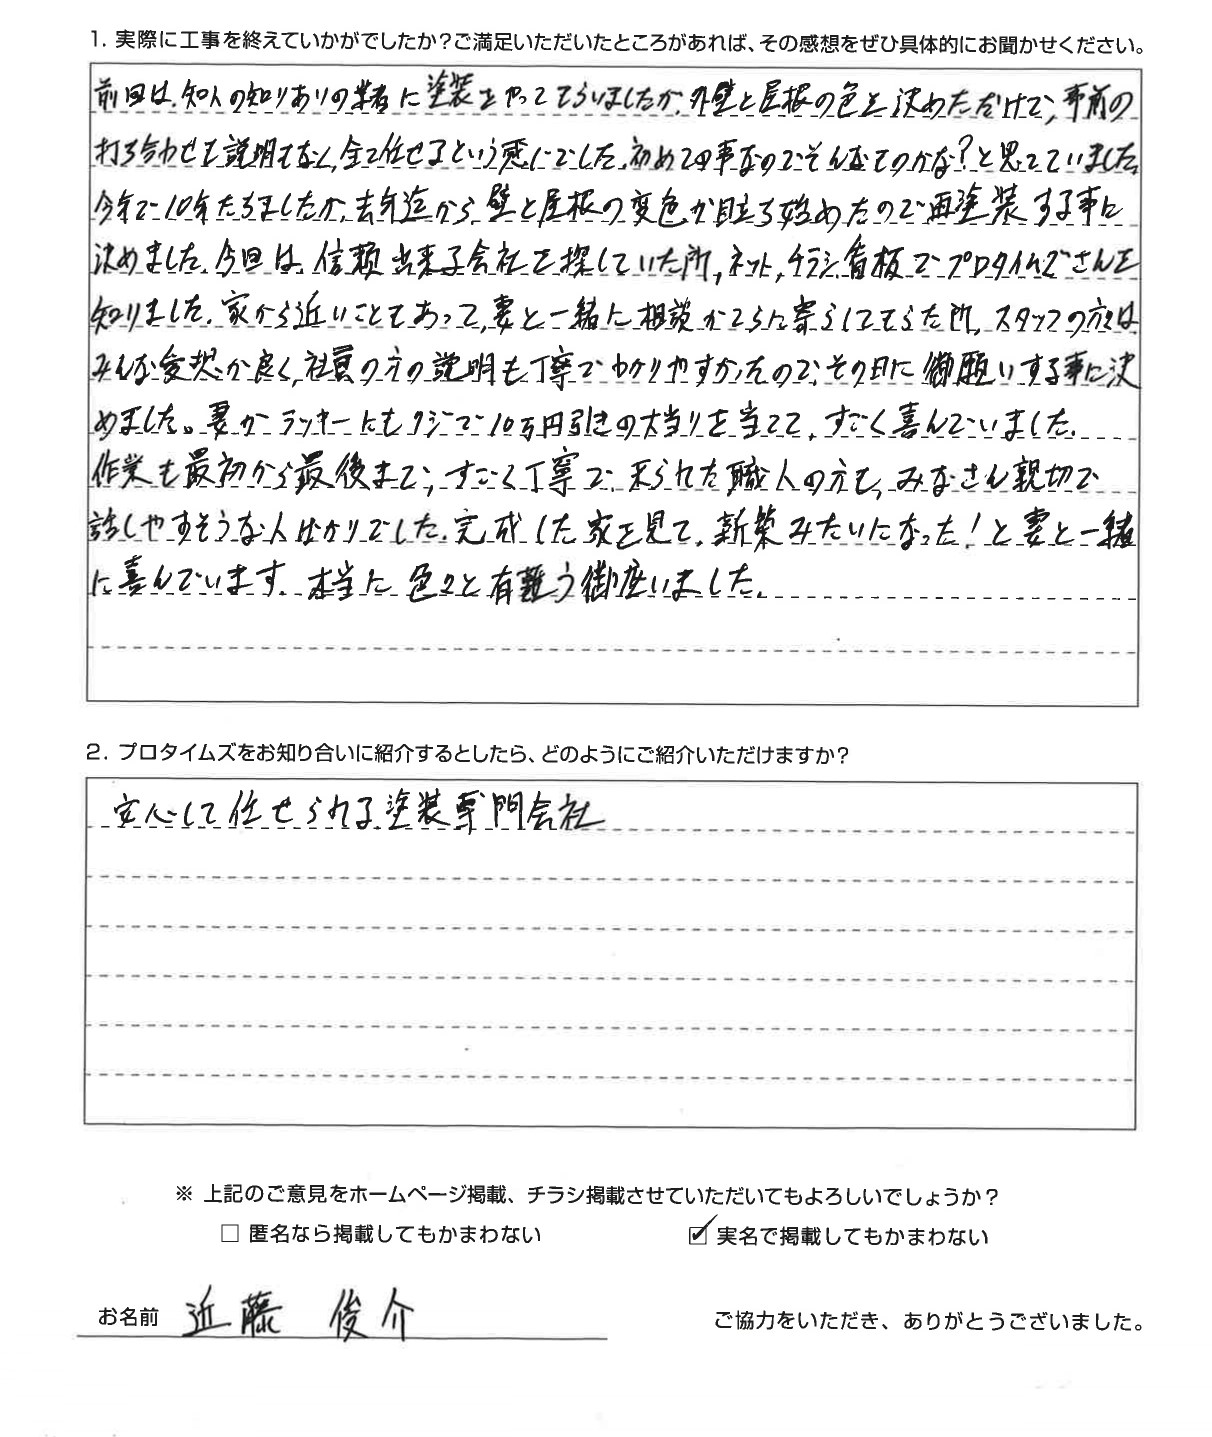 1. 実際に工事を終えていかがでしたか？ご満足いただいたところがあれば、その感想をぜひ具体的にお聞かせください。
前回は、知人の知りあいの業者に塗装をやってもらいましたが、外壁と屋根の色を決めただけで、事前の
打ち合わせも説明もなく、全て任せるという感じでした。初めての事なのでそんなものかな？と思っていました。
今年で10年たちましたが、去年迄から、壁と屋根の変色が目立ち始めたので再塗装する事に
決めました。今回は、信頼出来る会社を探していた所、ネット、チラシ、看板でプロタイムズさんを
知りました。家から近いこともあって、妻と一緒に相談がてらに寄らしてもらた所、スタッフの方は
みんな愛想が良く、社員の方の説明も丁寧でわかりやすかったので、その日に御願いする事に決
めました。妻がラッキーにもクジで10万円引きの大当りを当てて、すごく喜んでいました。
作業も最初から最後まで、すごく丁寧で、来られた職人の方も、みなさん親切で
話しやすそうな人ばかりでした。完成した家を見て、新築みたいになった！と妻と一緒
に喜んでいます。本当に色々と有難う御座いました。
2. プロタイムズをお知り合いに紹介するとしたら、どのようにご紹介いただけますか？
安心して任せられる塗装専門会社
※ 上記のご意見をホームページ掲載、チラシ掲載させていただいてもよろしいでしょうか？
□ 匿名なら掲載してもかまわない ☑ 実名で掲載してもかまわない
お名前 近藤 俊介 ご協力をいただき、ありがとうございました。